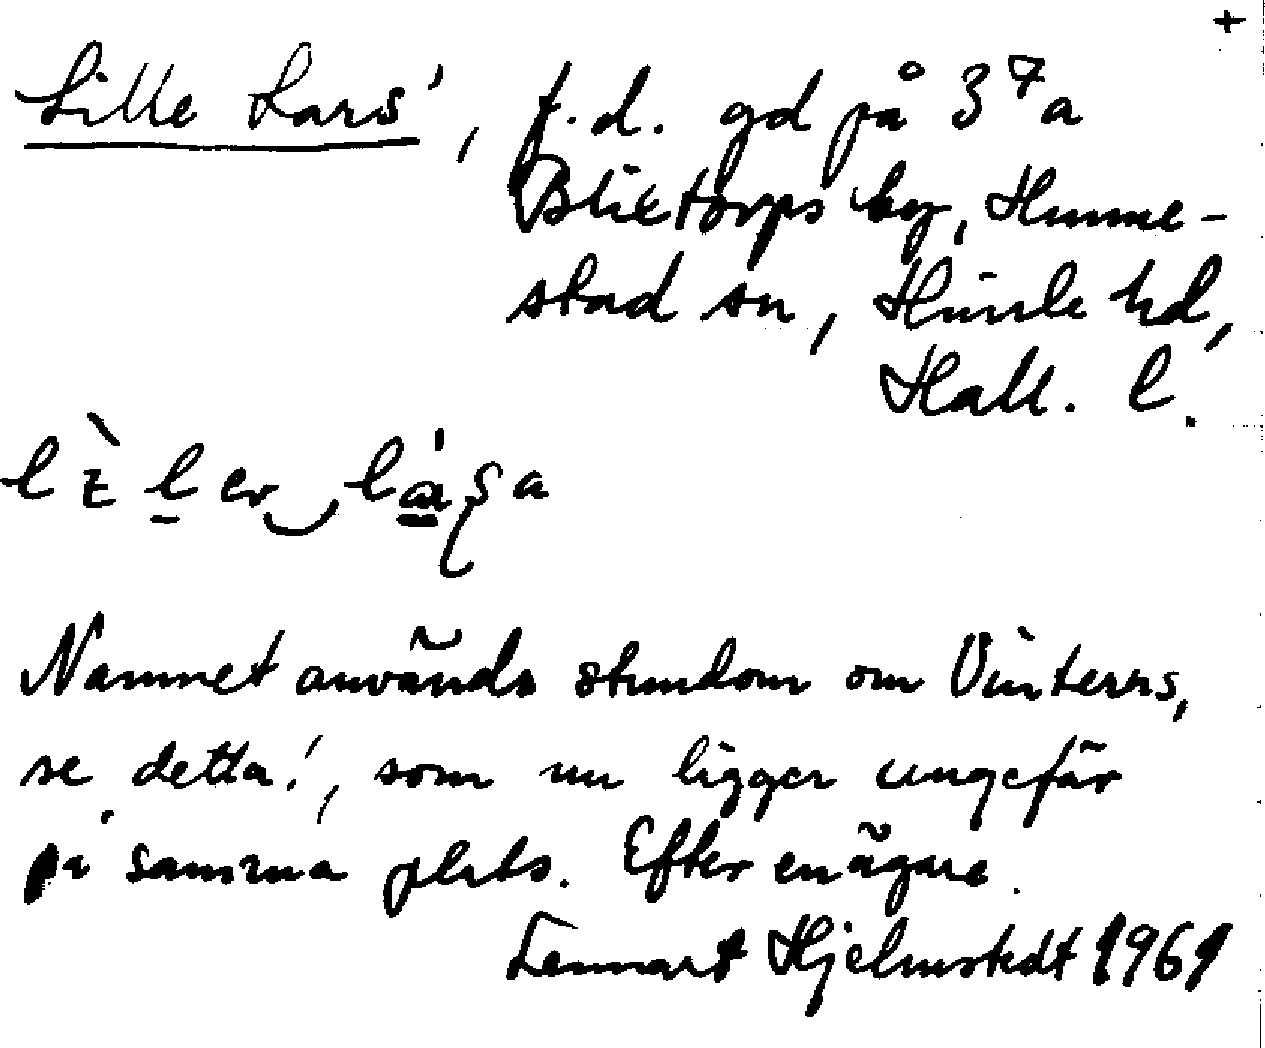 +
Lille Lars', f.d. gd på 3⁷a
Blixtorps by, Hunne-
stad sn, Himle hd,
Hall. l.
Namnet används stundom om Vinterns,
se detta!, som nu ligger ungefär
på samma plats. Efter en ägare.
Lennart Hjelmstedt 1961